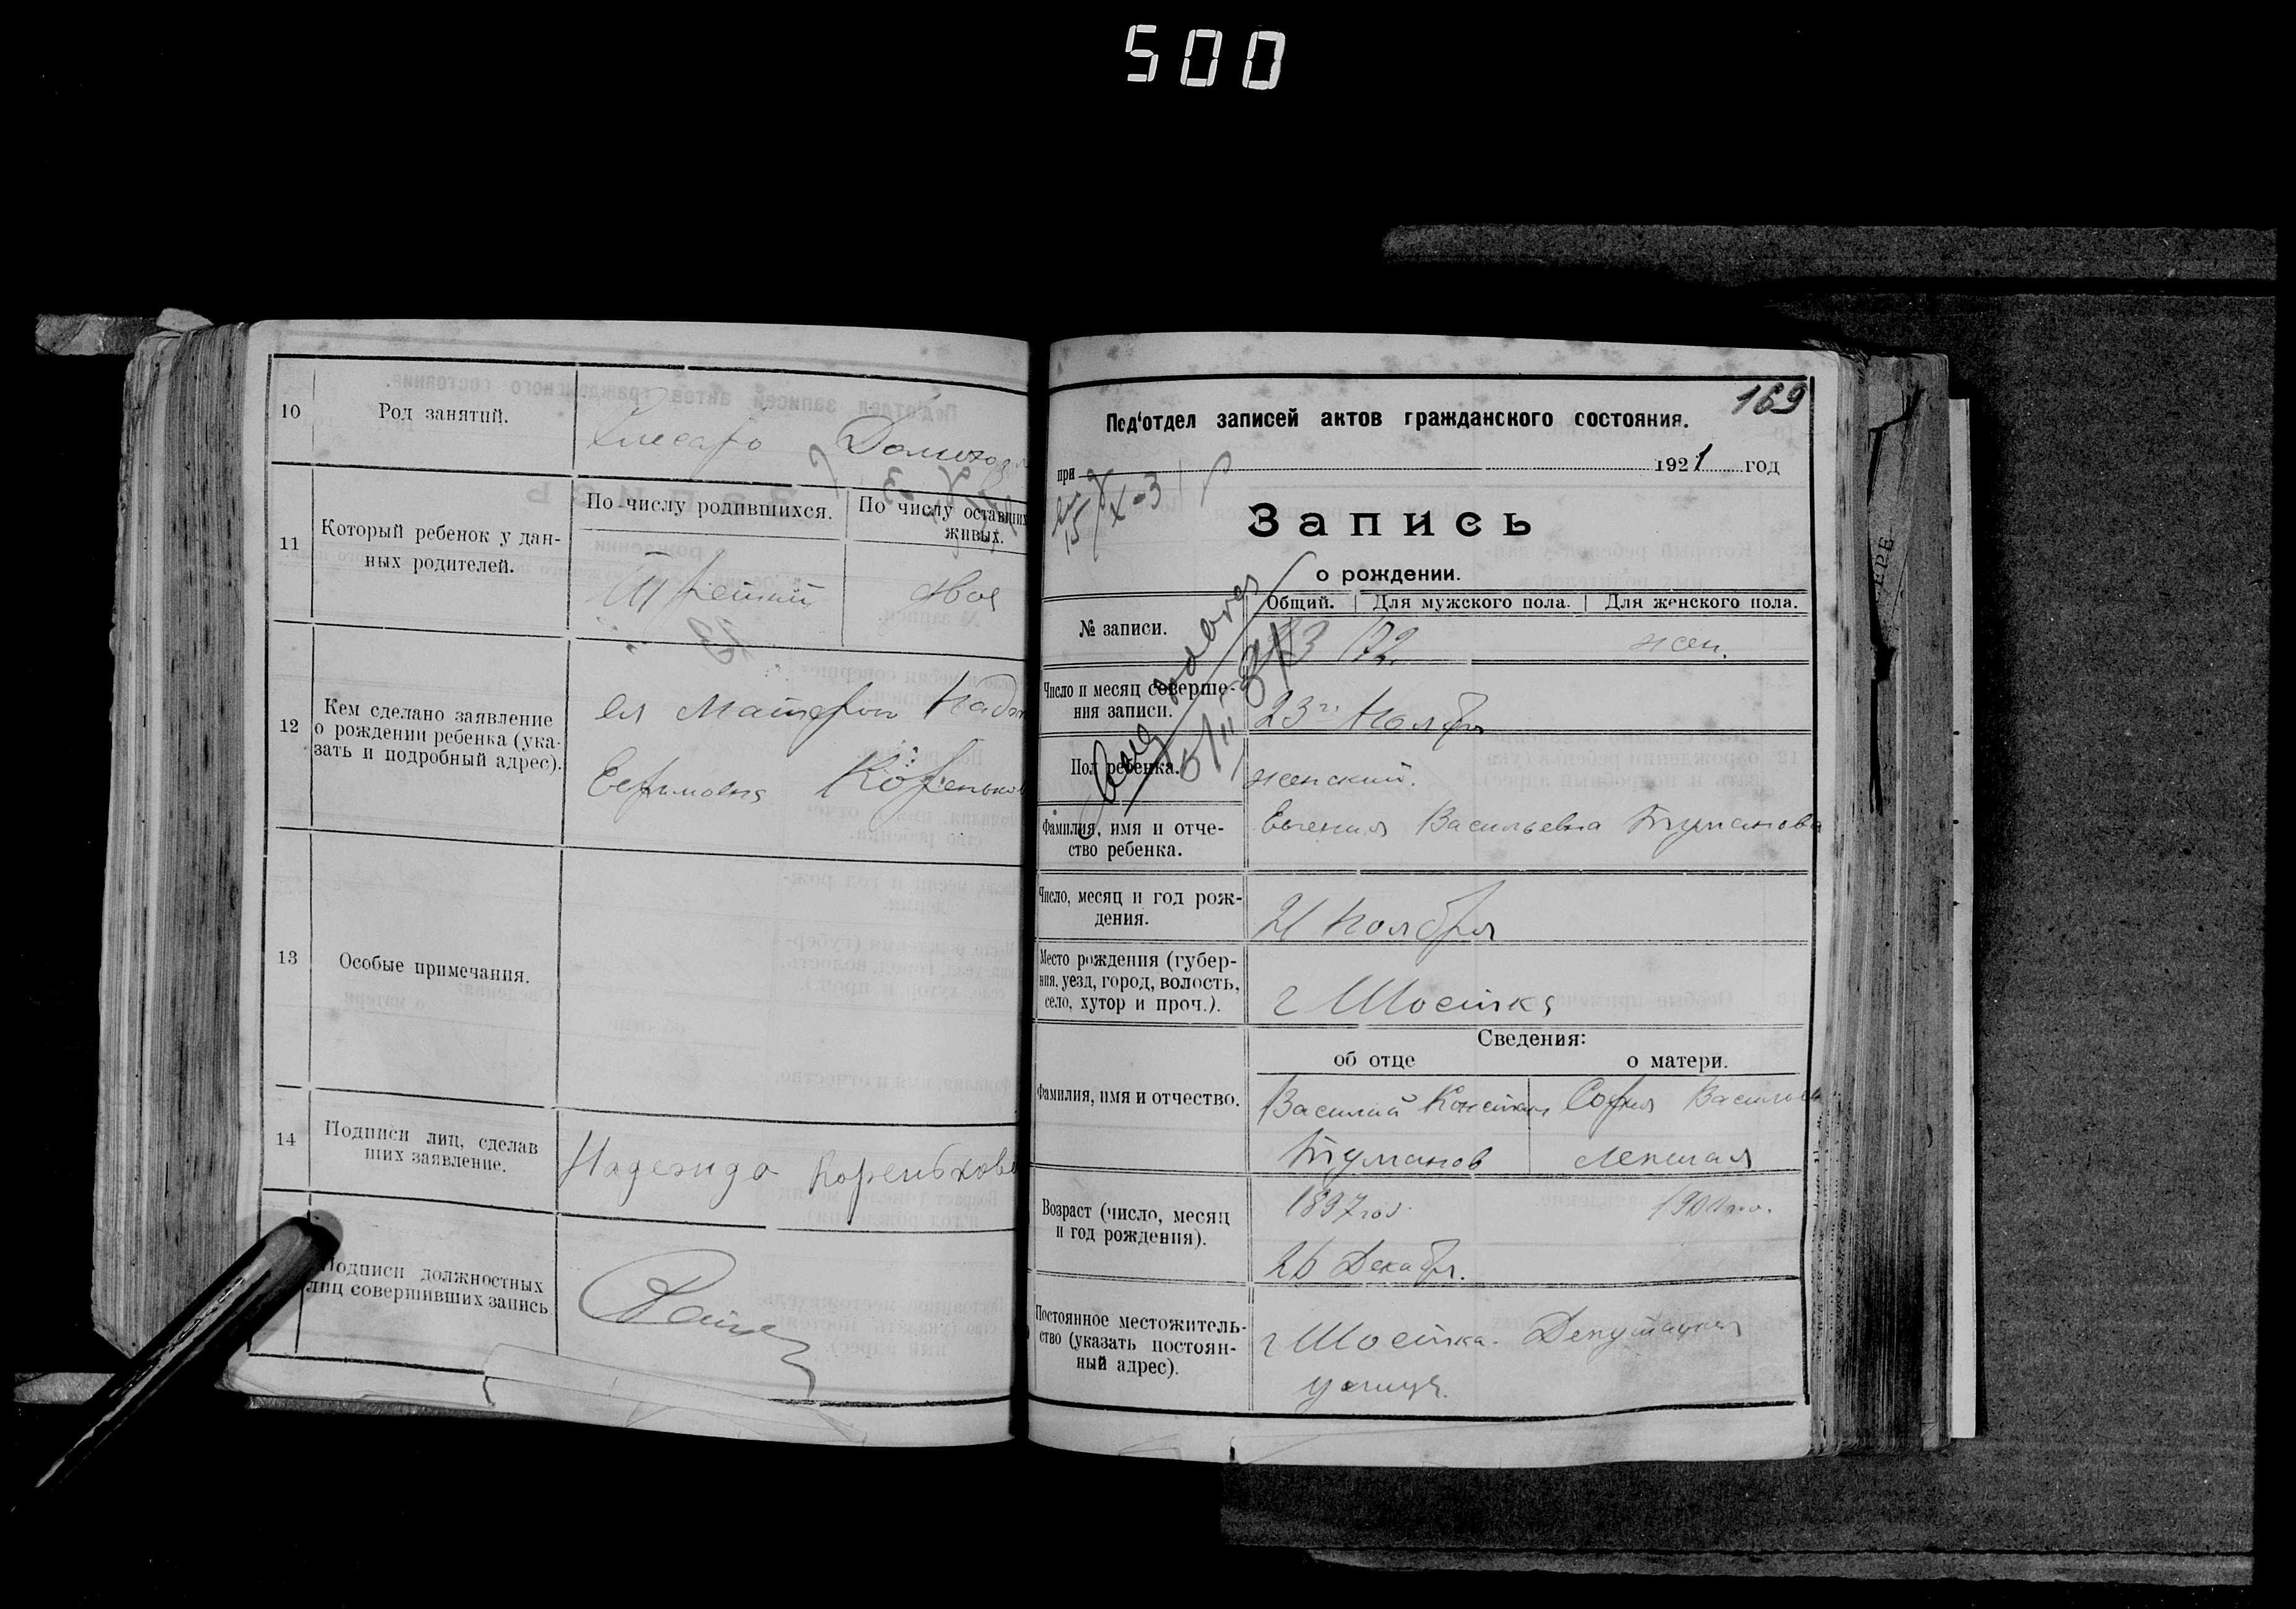 500
10
Род занятий.
Слесарь
Домохоз
11
Который ребенок у дан-
ных родителей.
По числу родившихся.
По числу оставших
живых.
Третий
двоя
12
Кем сделано заявление
о рождении ребенка (ука-
зать и подробный адрес).
ея Матерью Надеж
Ефимовна Кореньков
13
Особые примечания.
14
Подписи лиц, сделав
ших заявление.
Надежда Коренькова
Подписи должностных
лиц совершивших запись
169
Под'отдел записей актов гражданского состояния.
при 1921 год
15/X-31
Запись
о рождении.
№ записи.
Общий. Для мужского пола. Для женского пола.
172
жен.
Число и месяц соверше-
ния записи.
23го Ноября
Пол ребенка.
женский.
Фамилия, имя и отче-
ство ребенка.
Евгения Васильевна Туманова
Число, месяц и год рож-
дения.
21 Ноября
Место рождения (губер-
ния, уезд, город, волость,
село, хутор и проч.).
г Шостка
Сведения:
об отце
о матери.
Фамилия, имя и отчество.
Василий Констан
София Васильев
Туманов
Возраст (число, месяц
и год рождения).
1897 год.
1901 го.
26 Декабр.
Постоянное местожитель-
ство (указать постоян-
ный адрес).
г Шостка. Депутацкая
улица.